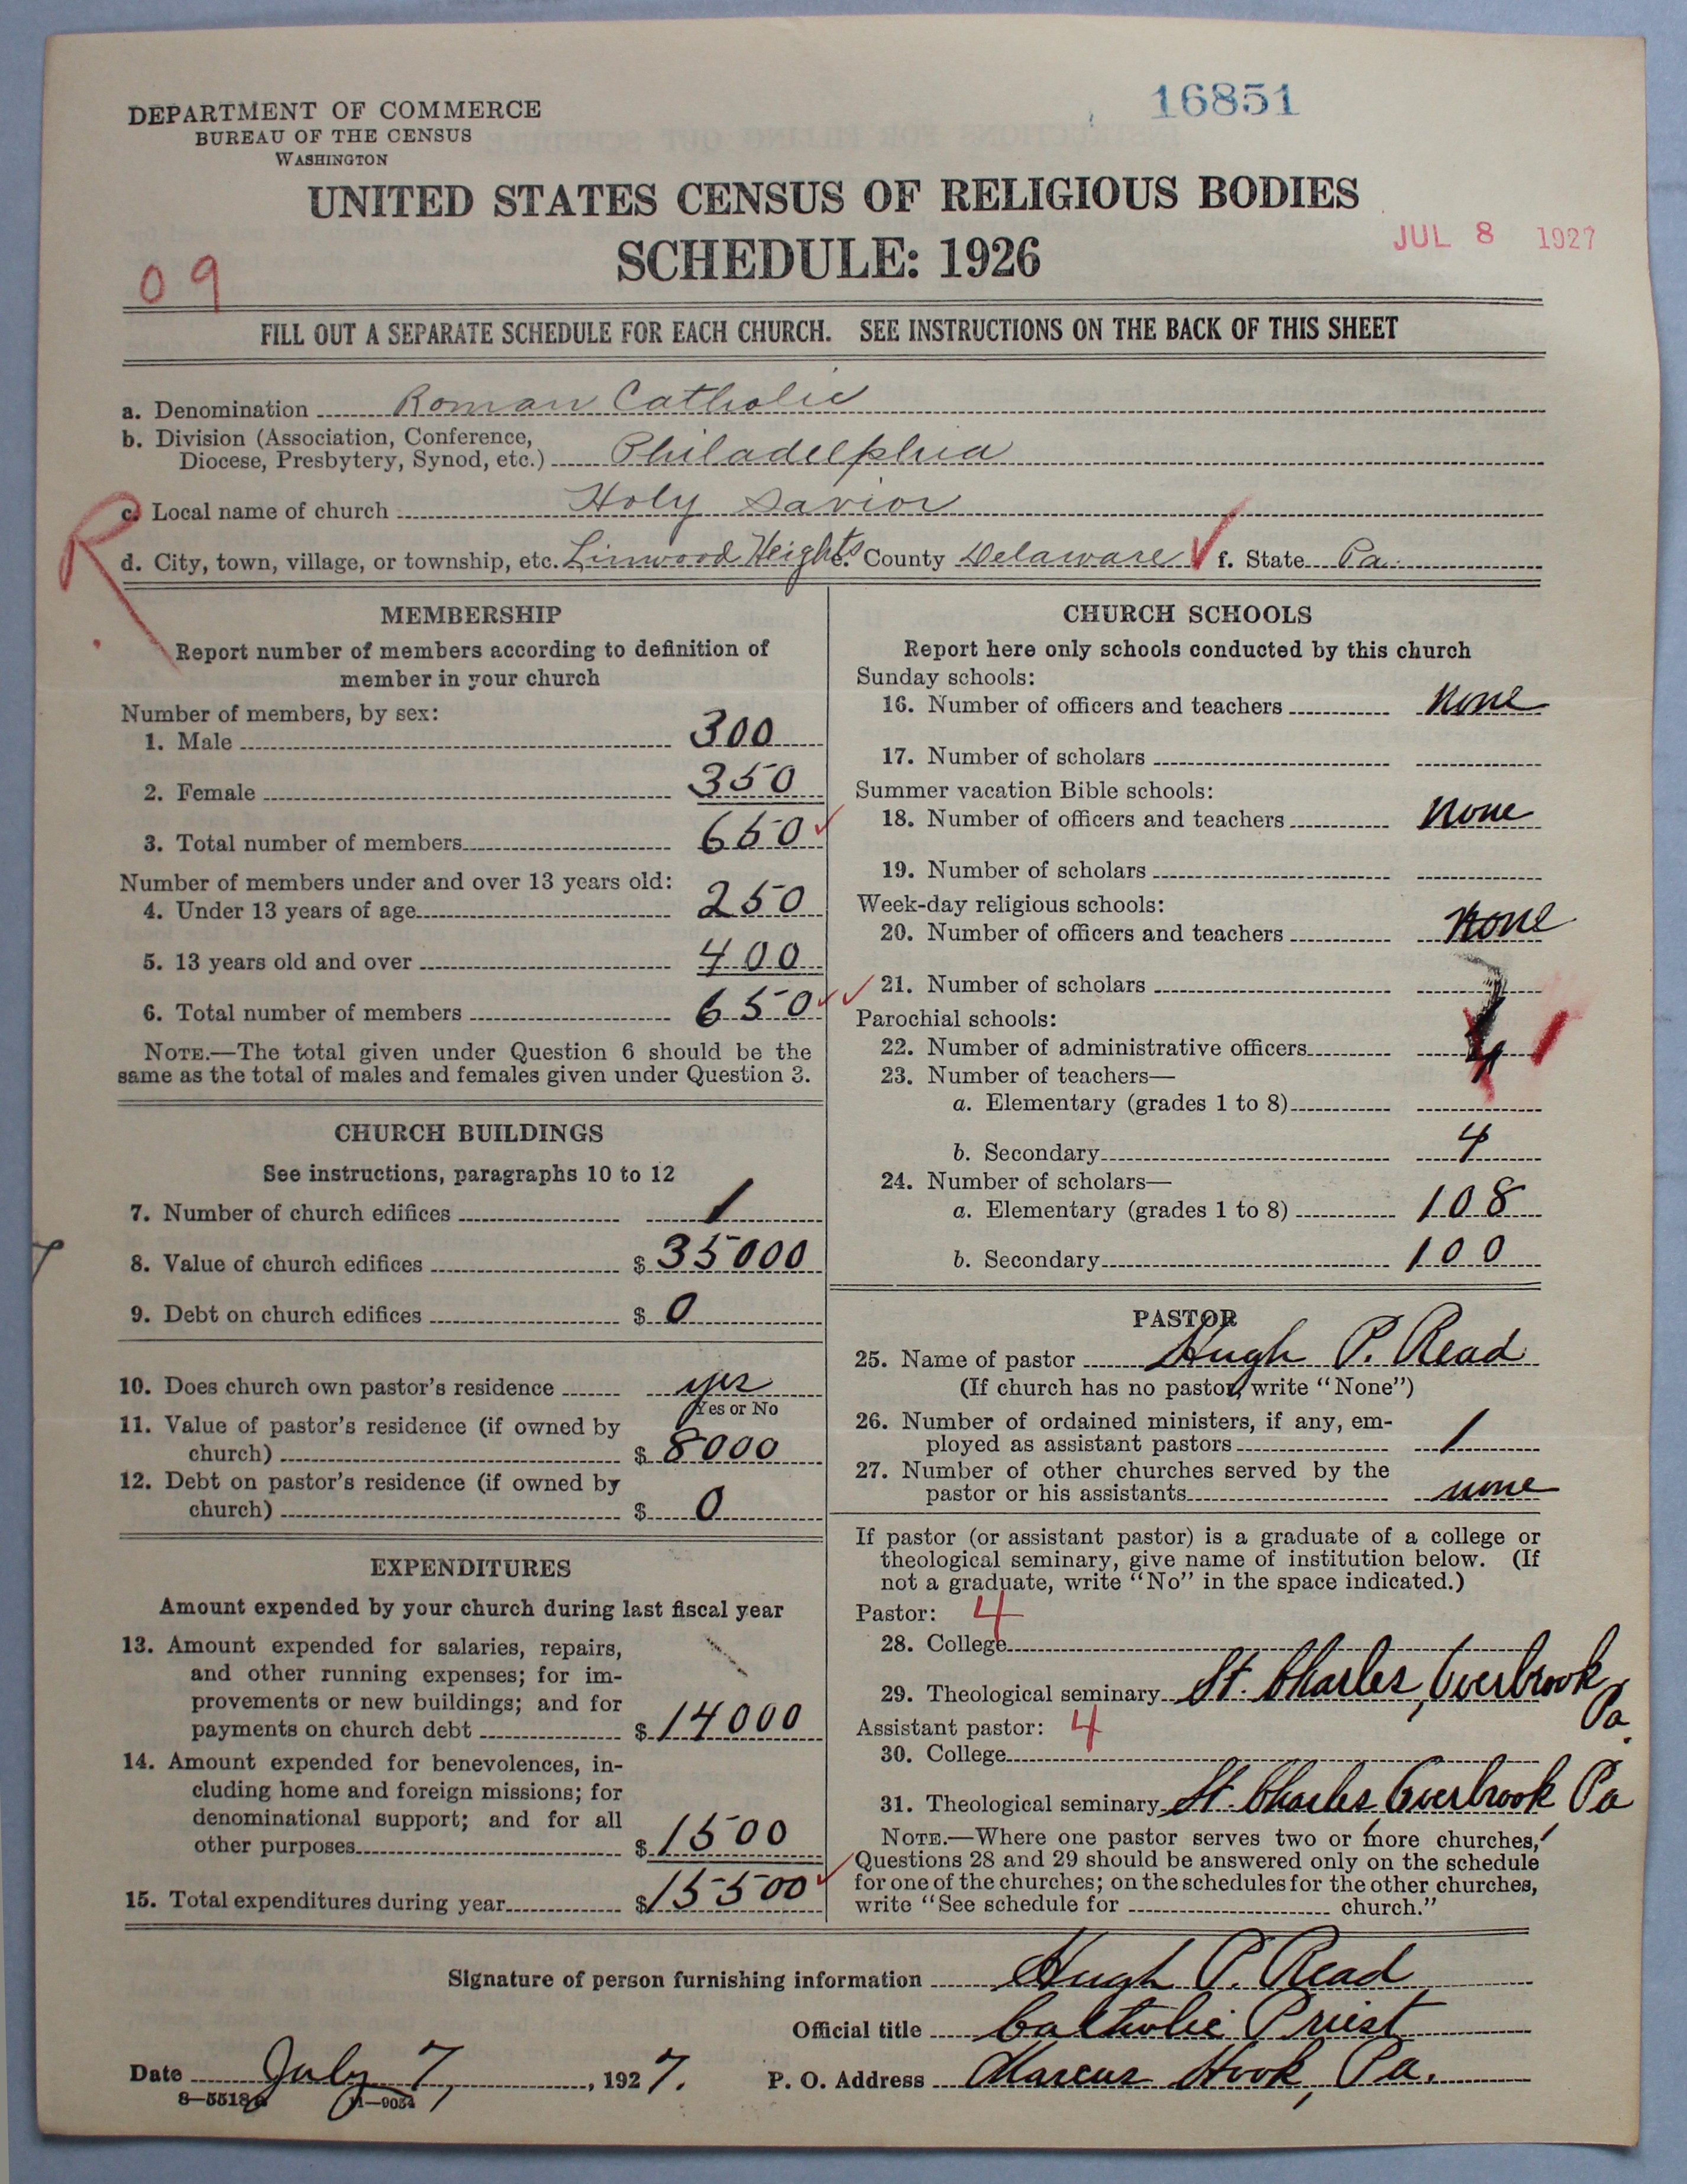 16851
DEPARTMENT OF COMMERCE
BUREAU OF THE CENSUS
WASHINGTON
UNITED STATES CENSUS OF RELIGIOUS BODIES
SCHEDULE: 1926
JUL 8 1927
09
FILL OUT A SEPARATE SCHEDULE FOR EACH CHURCH. SEE INSTRUCTIONS ON THE BACK OF THIS SHEET
a. Denomination Roman Catholic
b. Division (Association, Conference,
Diocese, Presbytery, Synod, etc.) Philadelphia
R
c. Local name of church Holy Savior
d. City, town, village, or township, etc. Linwood Heights e. County Delaware f. State Pa.
MEMBERSHIP
Report number of members according to definition of
member in your church
Number of members, by sex:
1. Male 300
2. Female 350
3. Total number of members 650
Number of members under and over 13 years old:
4. Under 13 years of age 250
5. 13 years old and over 400
6. Total number of members 650
NOTE.—The total given under Question 6 should be the
same as the total of males and females given under Question 3.
CHURCH BUILDINGS
See instructions, paragraphs 10 to 12
7. Number of church edifices 1
8. Value of church edifices $ 35000
9. Debt on church edifices $ 0
10. Does church own pastor's residence yes
Yes or No
11. Value of pastor's residence (if owned by
church) $ 8000
12. Debt on pastor's residence (if owned by
church) $ 0
EXPENDITURES
Amount expended by your church during last fiscal year
13. Amount expended for salaries, repairs,
and other running expenses; for im-
provements or new buildings; and for
payments on church debt $ 14000
14. Amount expended for benevolences, in-
cluding home and foreign missions; for
denominational support; and for all
other purposes $ 1500
15. Total expenditures during year $ 15500
CHURCH SCHOOLS
Report here only schools conducted by this church
Sunday schools:
16. Number of officers and teachers none
17. Number of scholars
Summer vacation Bible schools:
18. Number of officers and teachers none
19. Number of scholars
Week-day religious schools:
20. Number of officers and teachers none
21. Number of scholars
Parochial schools:
22. Number of administrative officers 1
23. Number of teachers—
a. Elementary (grades 1 to 8)
b. Secondary 4
24. Number of scholars—
a. Elementary (grades 1 to 8) 108
b. Secondary 100
PASTOR
25. Name of pastor Hugh P. Read
(If church has no pastor, write "None")
26. Number of ordained ministers, if any, em-
ployed as assistant pastors 1
27. Number of other churches served by the
pastor or his assistants none
If pastor (or assistant pastor) is a graduate of a college or
theological seminary, give name of institution below. (If
not a graduate, write "No" in the space indicated.)
Pastor: 4
28. College
29. Theological seminary St. Charles, Overbrook Pa.
Assistant pastor: 4
30. College
31. Theological seminary St. Charles, Overbrook Pa
NOTE.—Where one pastor serves two or more churches,
Questions 28 and 29 should be answered only on the schedule
for one of the churches; on the schedules for the other churches,
write "See schedule for church."
Signature of person furnishing information Hugh P. Read
Official title Catholic Priest
Date July 7, 1927. P. O. Address Marcus Hook, Pa.